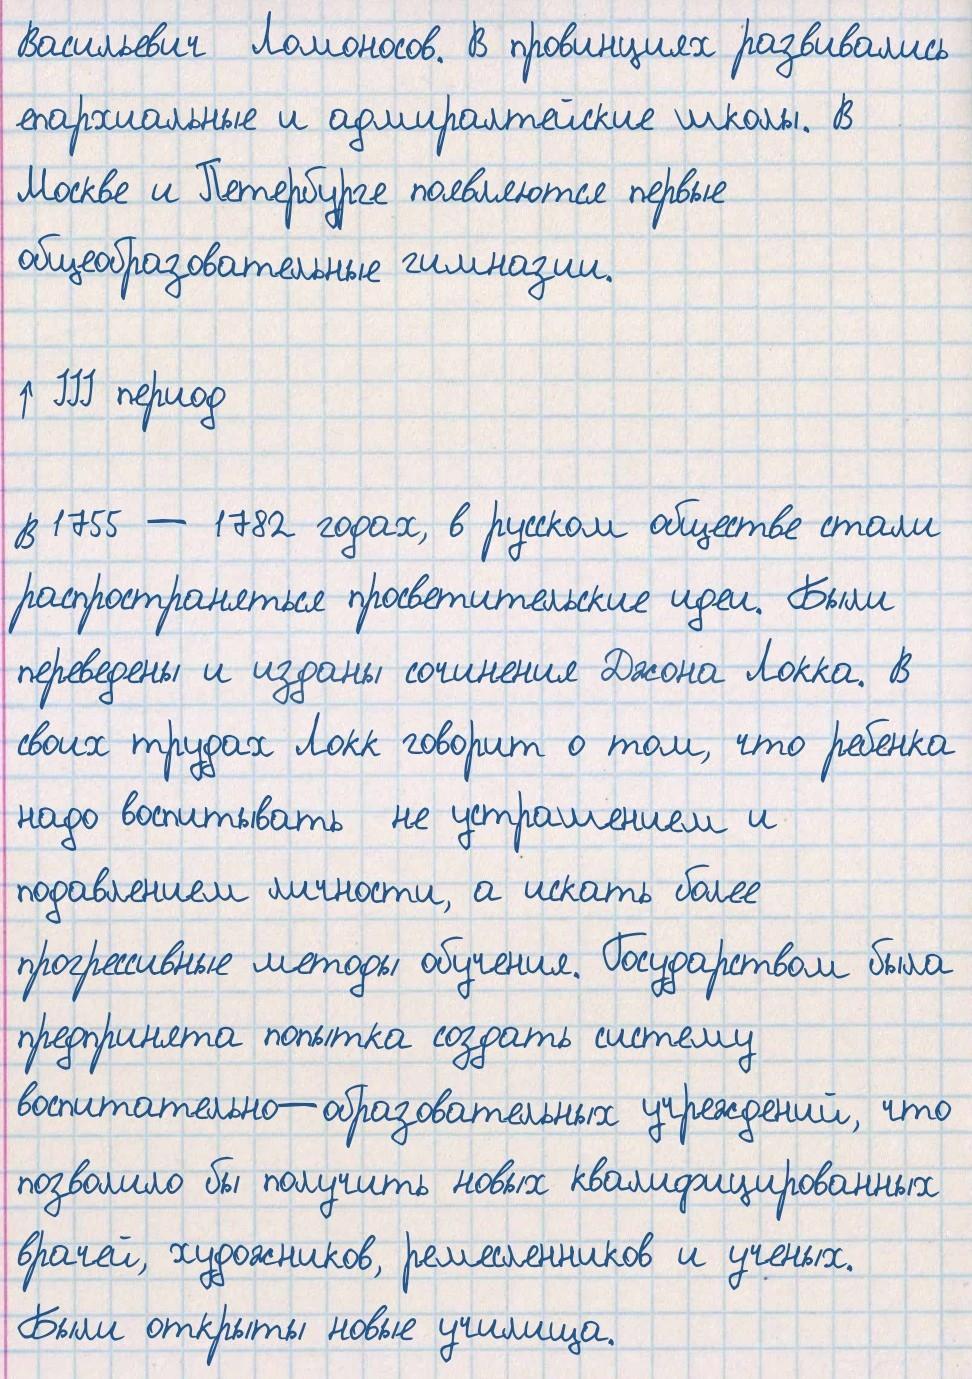 Васильевич Ломоносов. В провинциях развивались
епархиальные и адмиралтейские школы. В
Москве и Петербурге появляются первые
общеобразовательные гимназии.
↑ III период
В 1755 — 1782 годах, в русском обществе стали
распространяться просветительские идеи. Были
переведены и изданы сочинения Джона Локка. В
своих трудах Локк говорит о том, что ребенка
надо воспитывать не устрашением и
подавлением личности, а искать более
прогрессивные методы обучения. Государством была
предпринята попытка создать систему
воспитательно—образовательных учреждений, что
позволило бы получить новых квалифицированных
врачей, художников, ремесленников и ученых.
Были открыты новые училища.